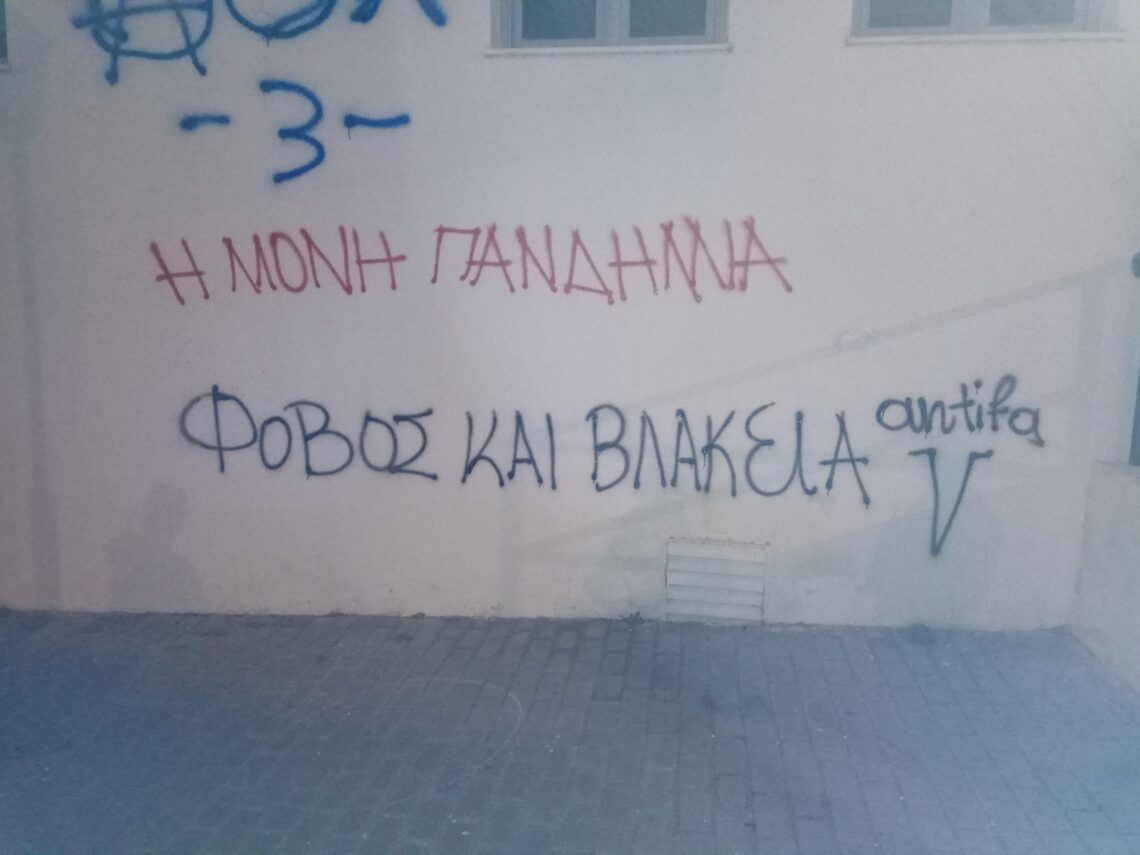 -3-
Η ΜΟΝΗ ΠΑΝΔΗΜΙΑ
ΦΟΒΟΣ ΚΑΙ ΒΛΑΚΕΙΑ antifa
V